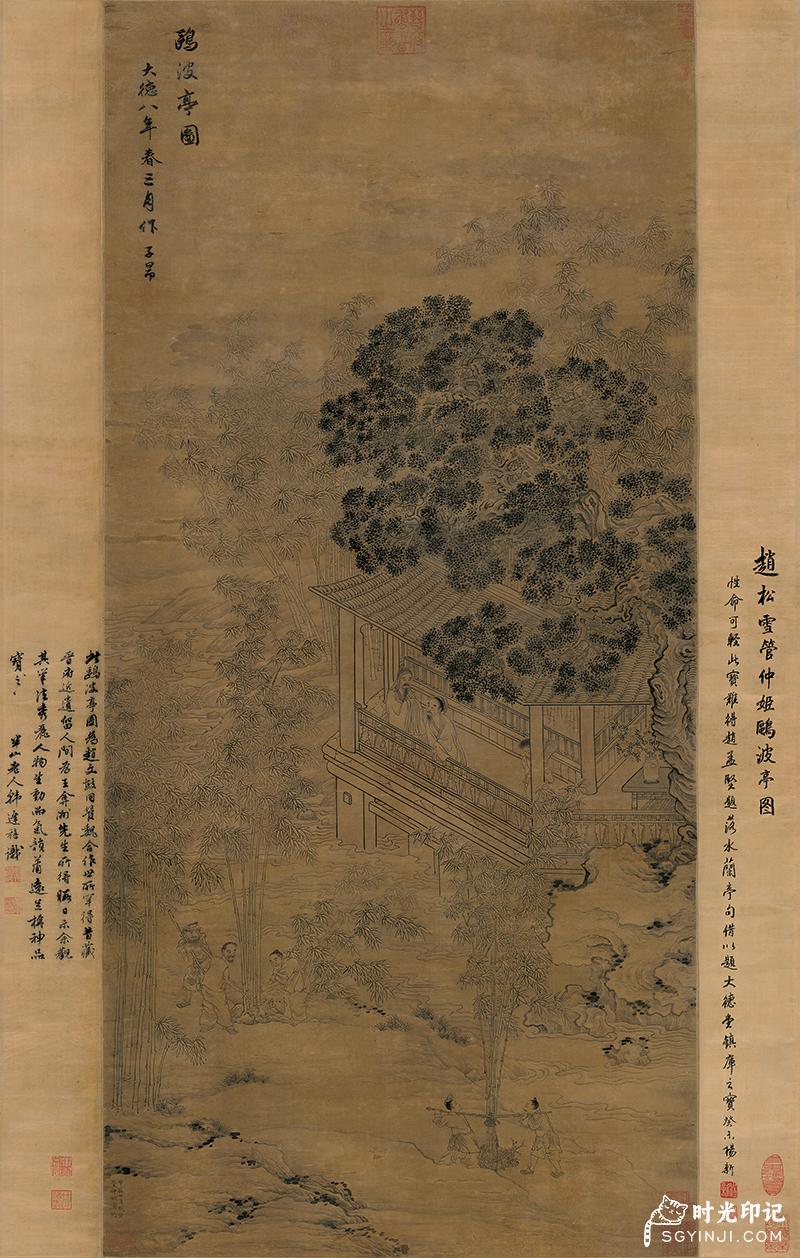 鷗波亭圖
大德八年春三月作 子昂
趙松雪管仲姬鷗波亭图
性命可轻此宝難得趙孟堅題落水蘭亭句借以題大德堂鎮庫之寶癸未楊新
此鷗波亭圖為趙文敏同管魏合作世所罕得昔藏
晋府近遺留人間為王弇州先生所得暇日示余觀
其筆法秀麗人物生動而氣韻蕭遠其橅神品
寶之
半山老人韩逢禧識
时光印记
SGYINJI.COM